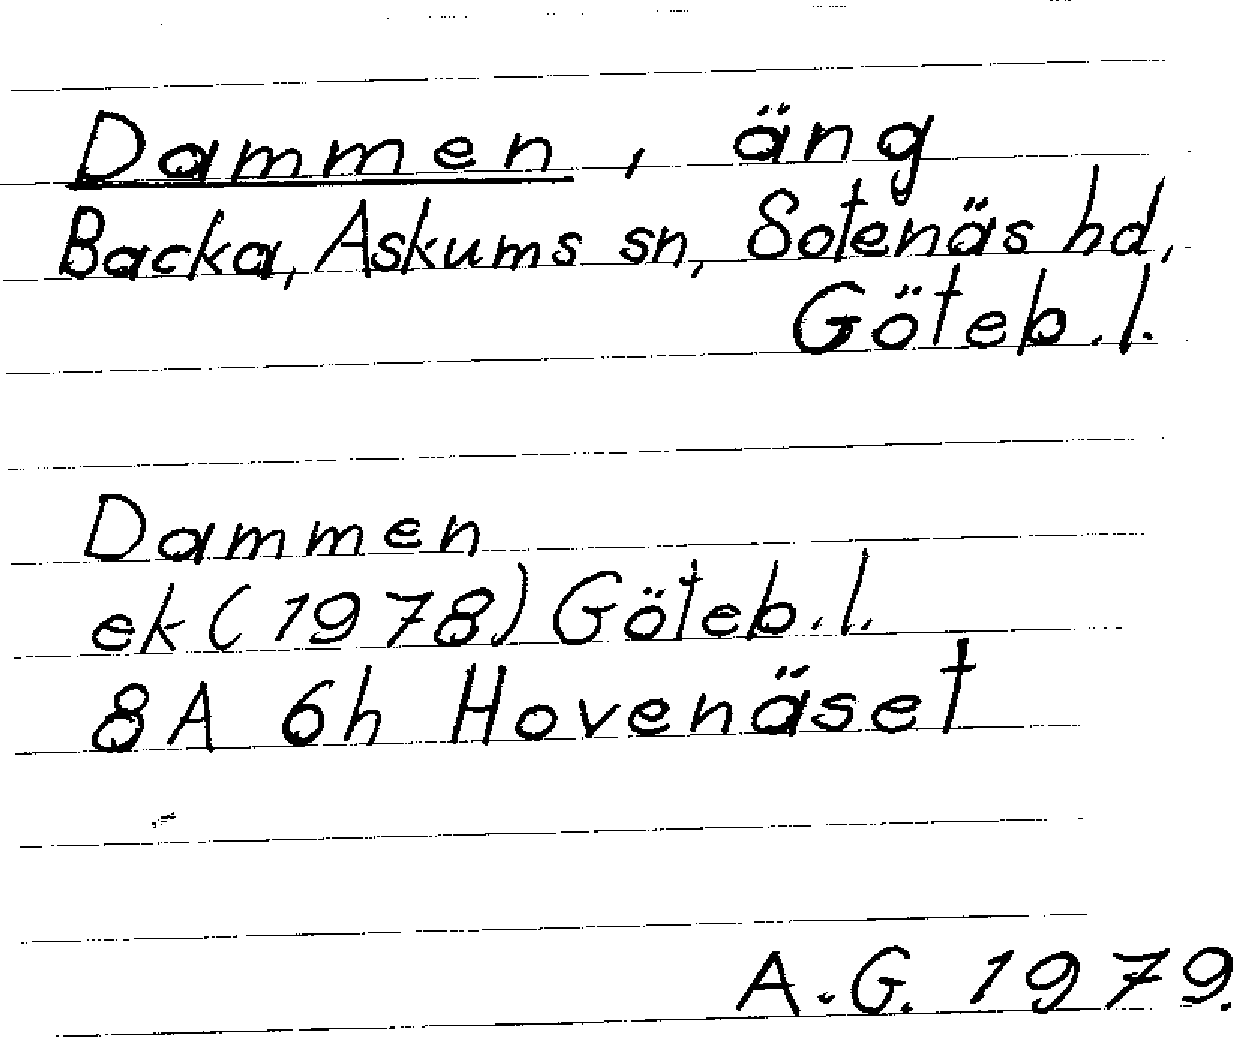 Dammen, äng
Backa, Askums sn, Sotenäs hd,
Göteb.l.
Dammen
ek (1978) Göteb.l.
8A 6h Hovenäset
A.G. 1979.